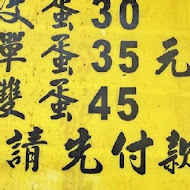 蛋30
單蛋35元
雙蛋45
請先付款